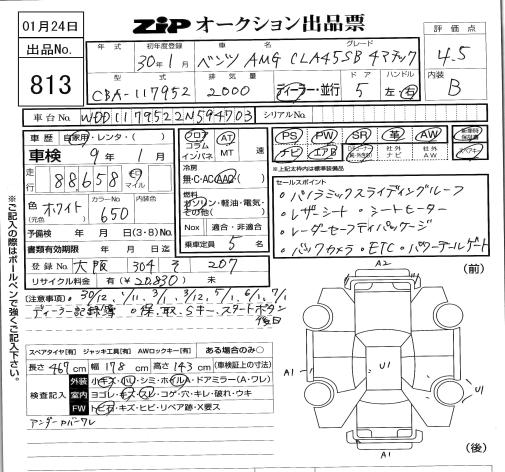 01月24日
出品No.
813
ZIP オークション出品票
年式 初年度登録 車名 グレード
30年1月 ベンツ AMG CLA45SB 4マチック
型式 排気量 ドア ハンドル
CBA-117952 2000 ディーラー・並行 5 左・右
評価点
4.5
内装
B
車台No. WDD1179522N594703 シリアルNo.
車歴 自家用・レンタ・( )
車検 9年1月
走行 88,658 マイル
色 (元色) ホワイト カラーNo. 650 内装色
予備検 年 月 日 (3・8) No.
書類有効期限 年 月 日迄
登録No. 大阪 304 そ 207
リサイクル料金 有(¥20,830) 未
フロア コラム インパネ AT MT 速
冷房 無・C・AC・AAC
燃料 ガソリン・軽油・電気・その他( )
Nox 適合・非適合
乗車定員 5名
PS PW SR 革 AW 新車時保証書
ナビ エアB 社外ナビ 社外AW スペアキー
※上記太枠内は標準装備品
セールスポイント
・パノラミックスライディングルーフ
・レザーシート ・シートヒーター
・レーダーセーフティパッケージ
・バックカメラ・ETC・パワーテールゲート
(注意事項) 30/12, 1/11, 3/1, 3/12, 5/1, 6/1, 7/1
ディーラー記録簿 ・保、取、Sキー、スタートボタン
後日
※ご記入の際はボールペンで強くご記入下さい。
スペアタイヤ[有] ジャッキ工具[有] AWロックキー[有] ある場合のみ○
長さ 467cm 幅 178cm 高さ 143cm (車検証上の寸法)
検査記入
外装 小キズ・凹・シミ・ホイルA・ドアミラー(A・ワレ)
室内 ヨゴレ・キズ・スレ・コゲ・穴・キレ・破れ・ウキ
FW トビ石・キズ・ヒビ・リペア跡・X要ス
アンダーカバーワレ
(前)
A2
A1
U1
U1
A1
(後)